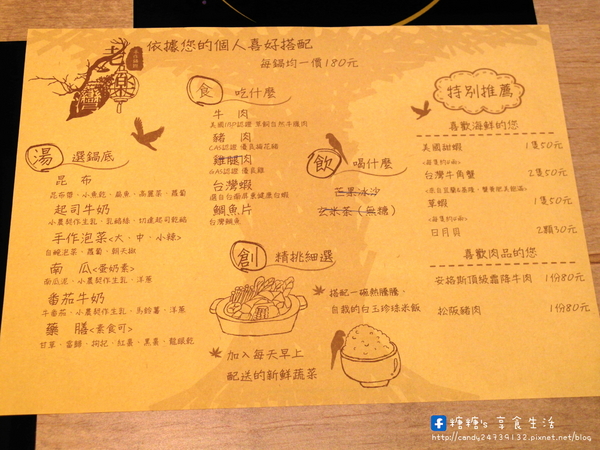 老欒灣
依據您的個人喜好搭配
每鍋均一價180元
湯 選鍋底
昆布
昆布醬、小魚乾、扁魚、高麗菜、蘿蔔
起司牛奶
小農契作生乳、乳酪絲、切達起司乾酪
手作泡菜<大、中、小辣>
白碗泡菜、蘿蔔、朝天椒
南 瓜<蛋奶素>
南瓜泥、小農契作生乳、洋蔥
番茄牛奶
牛番茄、小農契作生乳、馬鈴薯、洋蔥
藥 膳<素食可>
甘草、當歸、枸杞、紅棗、黑棗、龍眼乾
食 吃什麼
牛 肉
豬 肉
CAS認證 優良梅花豬
雞腿肉
CAS認證 優良雞
台灣蝦
鯛魚片
台灣鯛魚
飲 喝什麼
芒果冰沙
玄米茶(無糖)
創 精挑細選
搭配一碗熱騰騰,
自栽的白玉珍珠米飯
加入每天早上
配送的新鮮蔬菜
特別推薦
喜歡海鮮的您
美國甜蝦 1隻50元
台灣牛角蟹 2隻50元
草蝦 1隻50元
日月貝 2顆30元
喜歡肉品的您
安格斯頂級霜降牛肉 1份80元
松阪豬肉 1份80元
糖糖's 享食生活
http://candy24739132.pixnet.net/blog